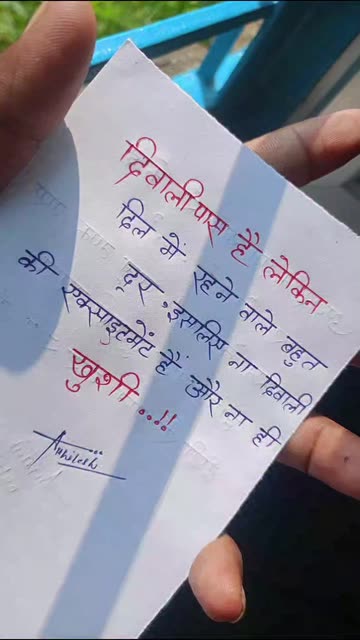 दिवाली पास है लेकिन
दिल में रहने वाले बहुत
दूर, इसलिए ना दिवाली
की एक्साइटमेंट हैं और ना ही
खुशी ...!!
Akhilesh